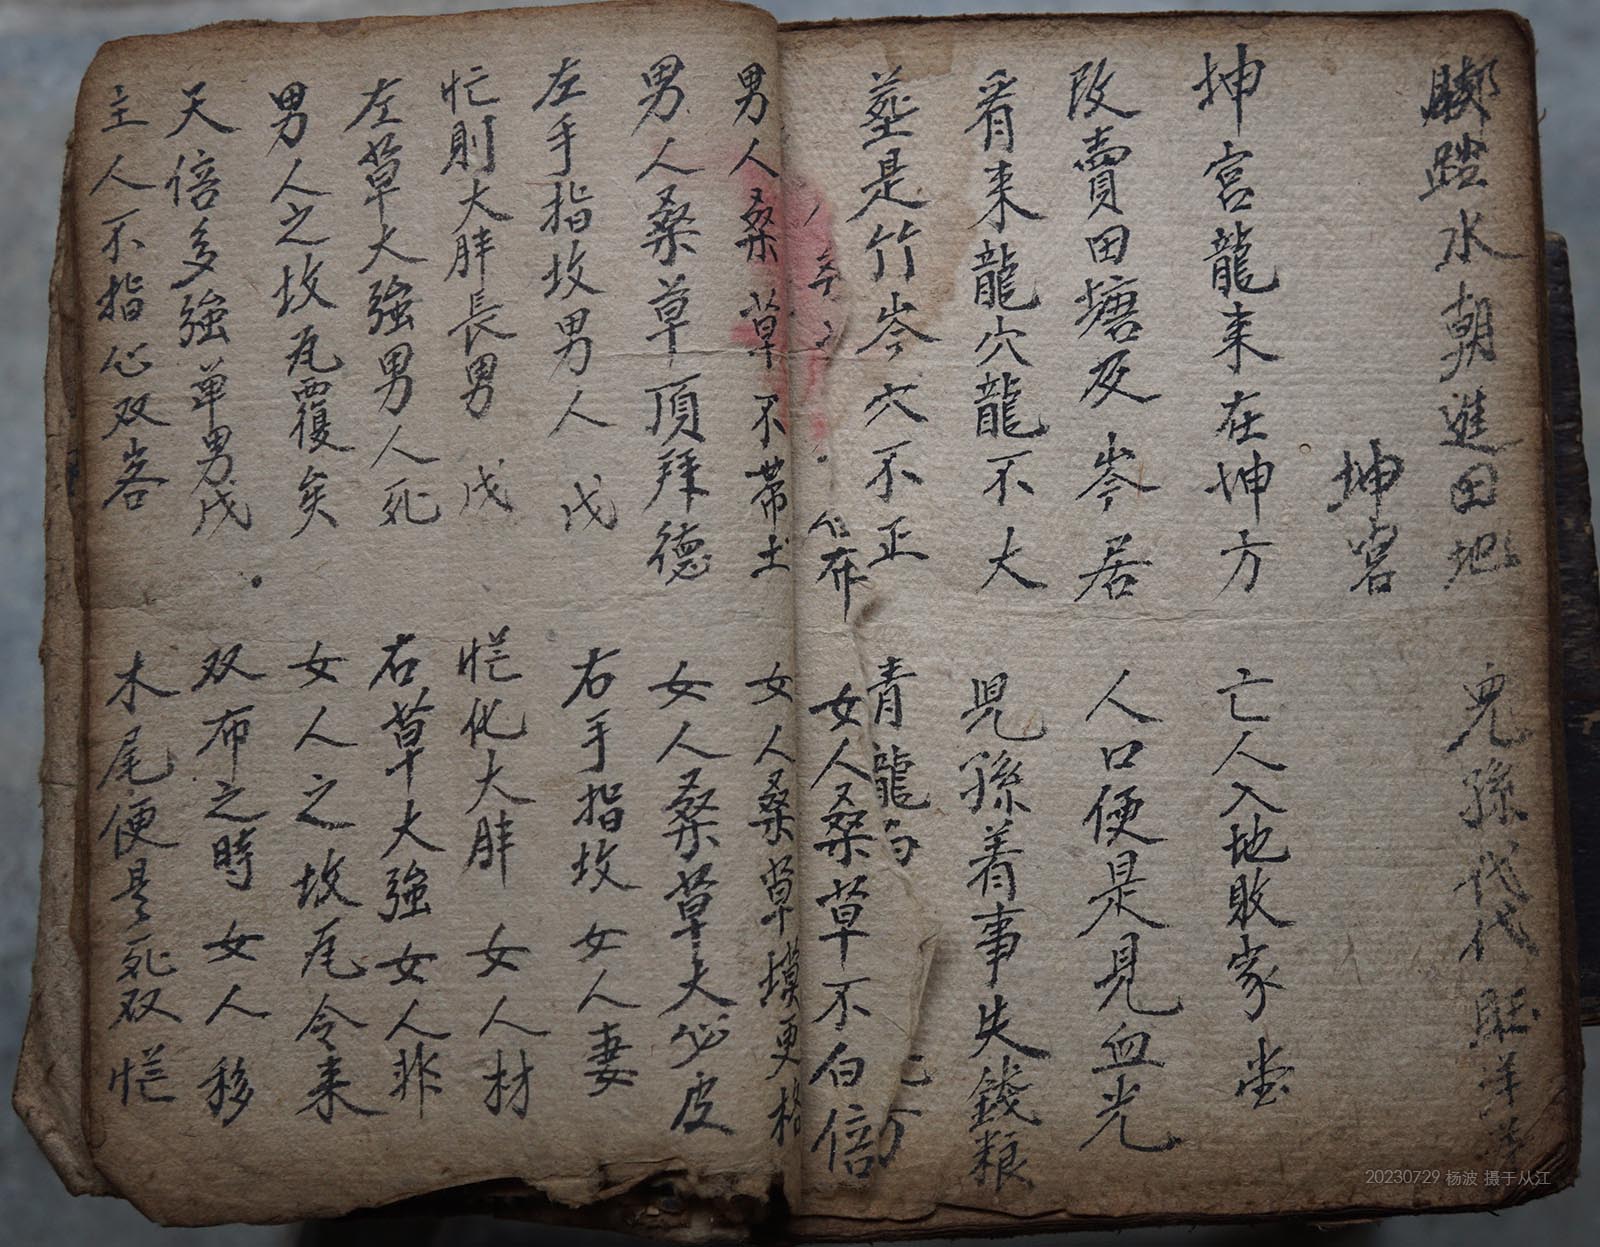 脚踏水朝進田地 兒孫代代照洋洋
坤宮
坤宮龍来在坤方 亡人入地敗家堂
改賣田塘及岑居 人口便是見血光
看来龍穴龍不大 児孫着事失錢粮
塟是竹岑穴不正 青龍
女人桑草不白倍
男人桑草不帯土 女人桑草墳更格
男人桑草頂拜德 女人桑草大必皮
左手指坟男人戊 右手指坟女人妻
忙則大胖長男戊 恾化大胖女人材
左草大強男人死 右草大強女人非
男人之坟瓦覆矣 女人之坟瓦令来
天倍多強单男戊 双布之時女人移
主人不指心双客 木尾便是死双恾
20230729 杨波 摄于从江